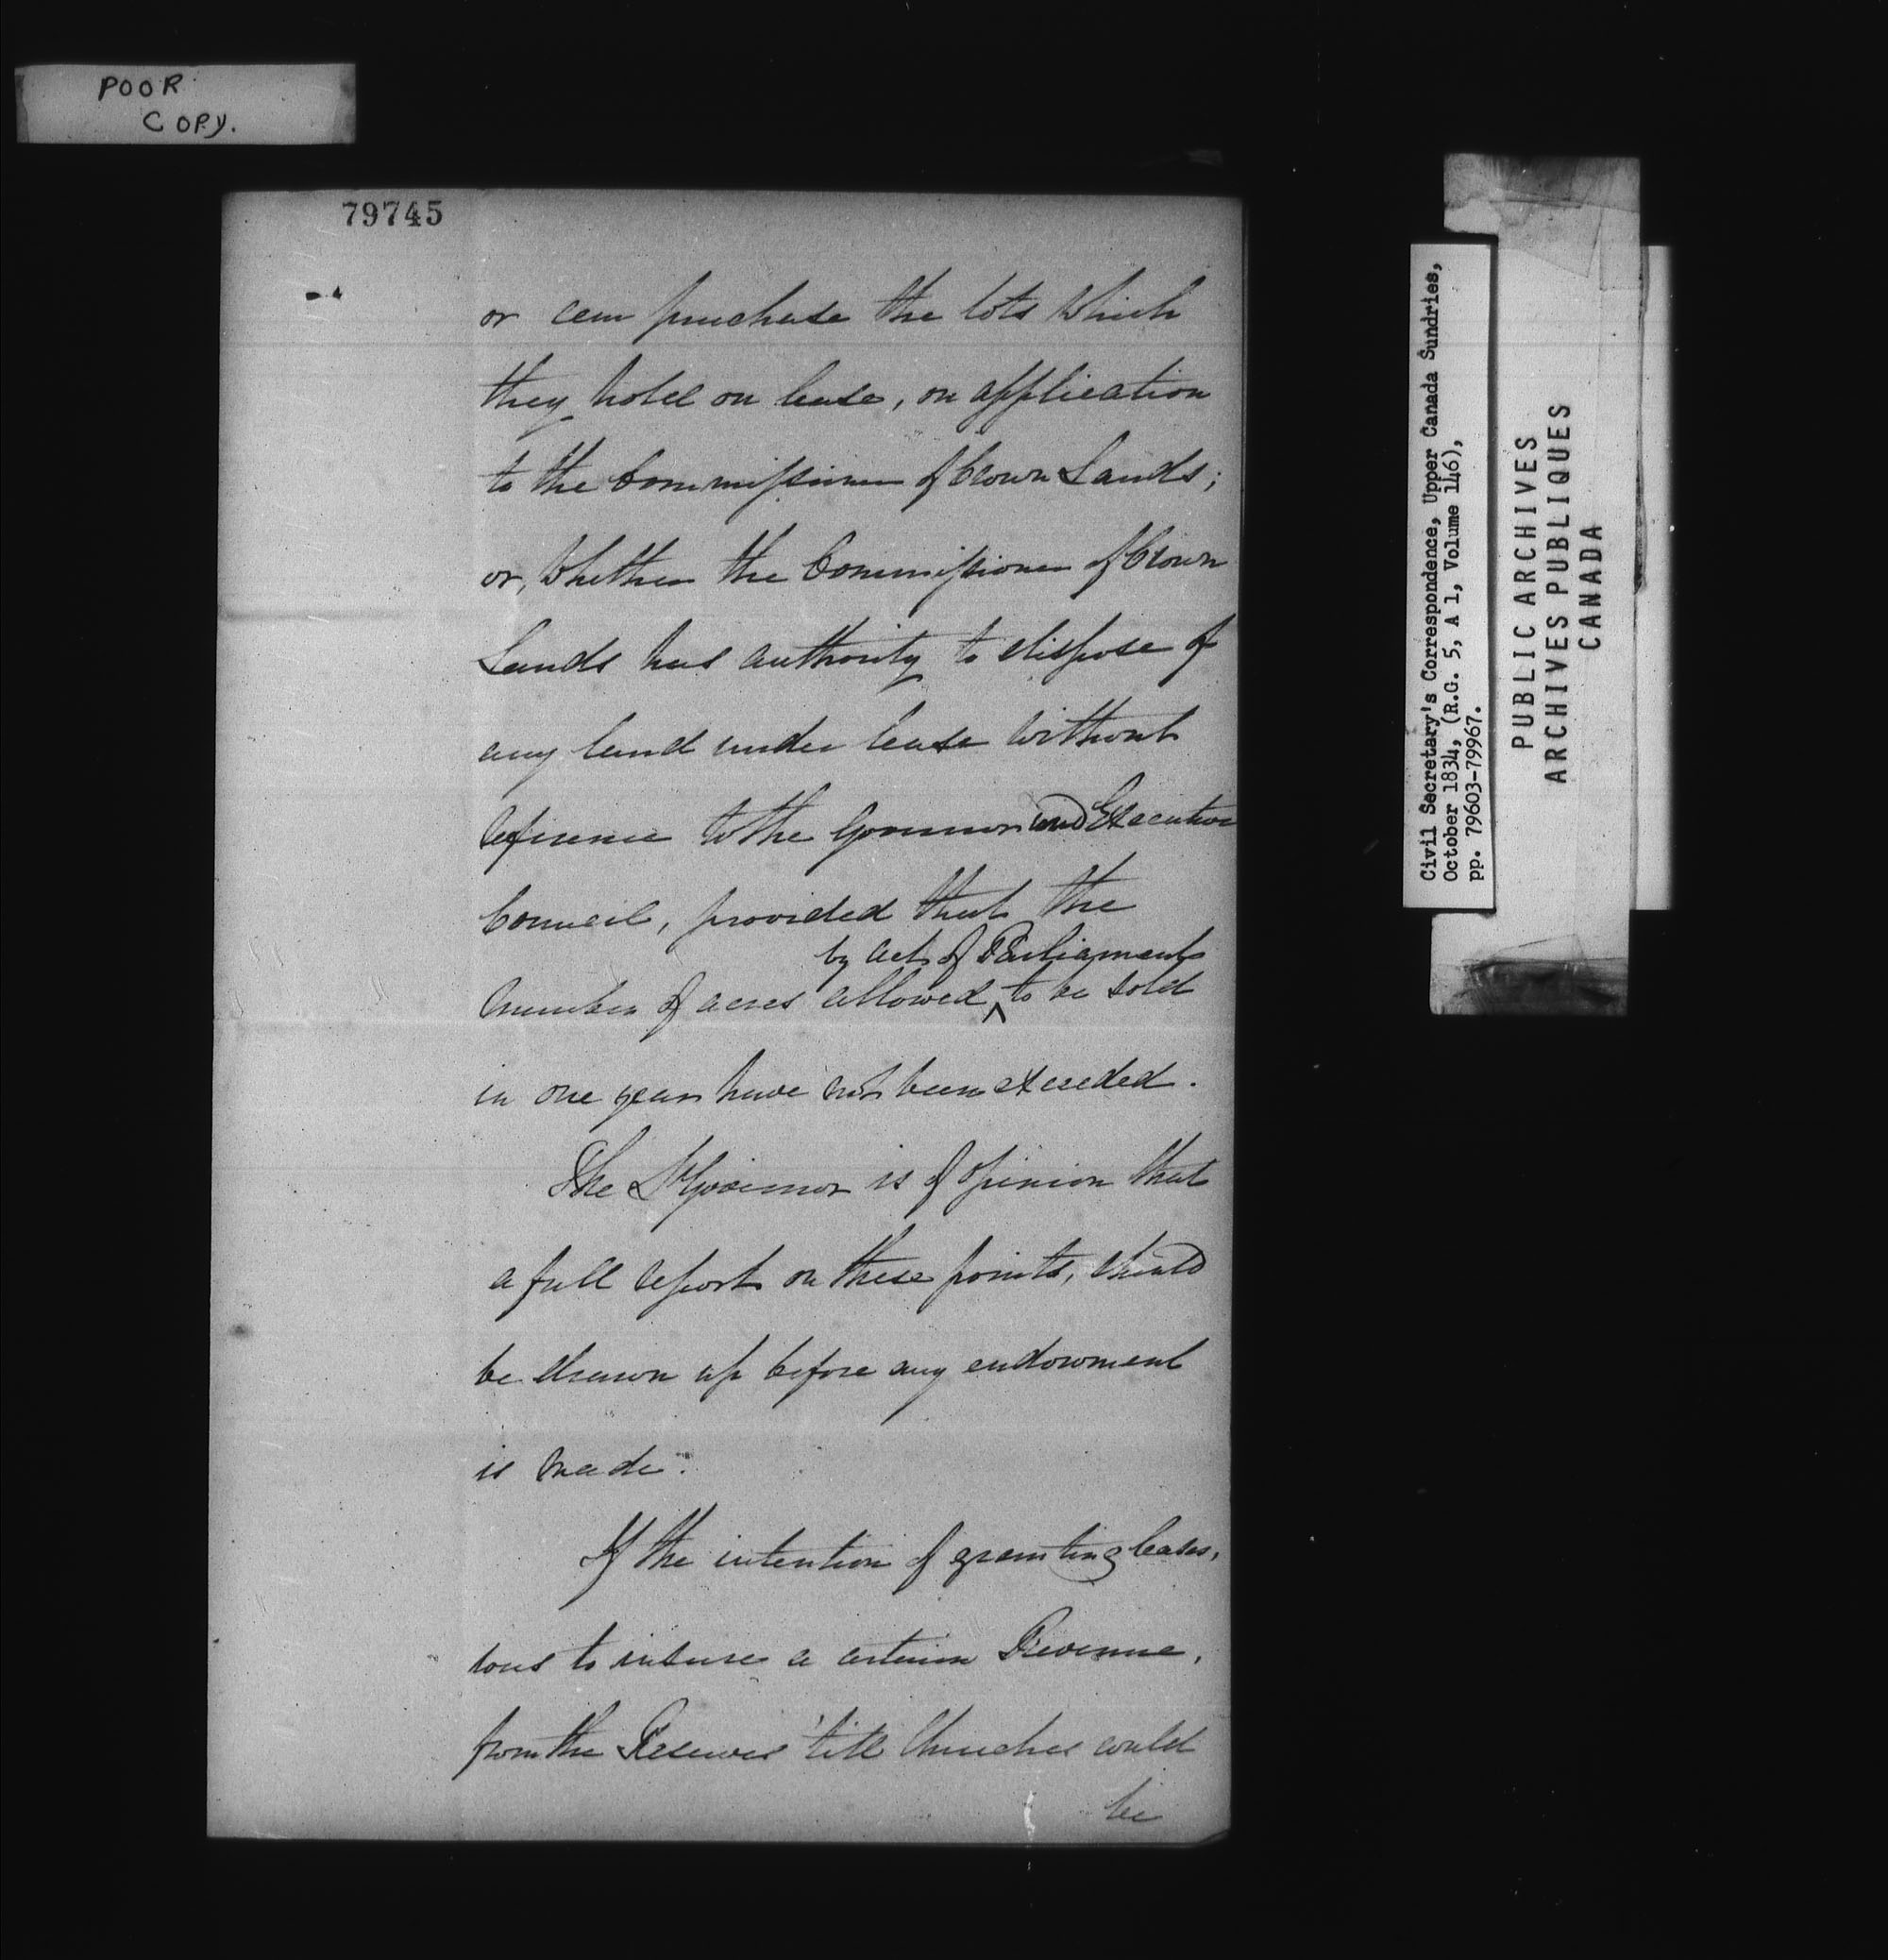 POOR
COPY.
79745
or can purchase the lots which
they hold on lease, on application
to the Commissioner of Crown Lands;
or, whether the Commissioner of Crown
Lands has authority to dispose of
any land under lease without
reference to the Governor and Executive
Council, provided that the
by act of Parliament
number of acres allowed ^ to be sold
in one year have not been exceeded.
The Lt Governor is of opinion that
a full report on these points, should
be drawn up before any endowment
is made.
If the intention of granting leases,
was to insure a certain Revenue,
from the Reserves 'till Churches could
be
Civil Secretary's Correspondence, Upper Canada Sundries,
October 1834, (R.G. 5, A 1, Volume 146),
pp. 79603-79967.
PUBLIC ARCHIVES
ARCHIVES PUBLIQUES
CANADA